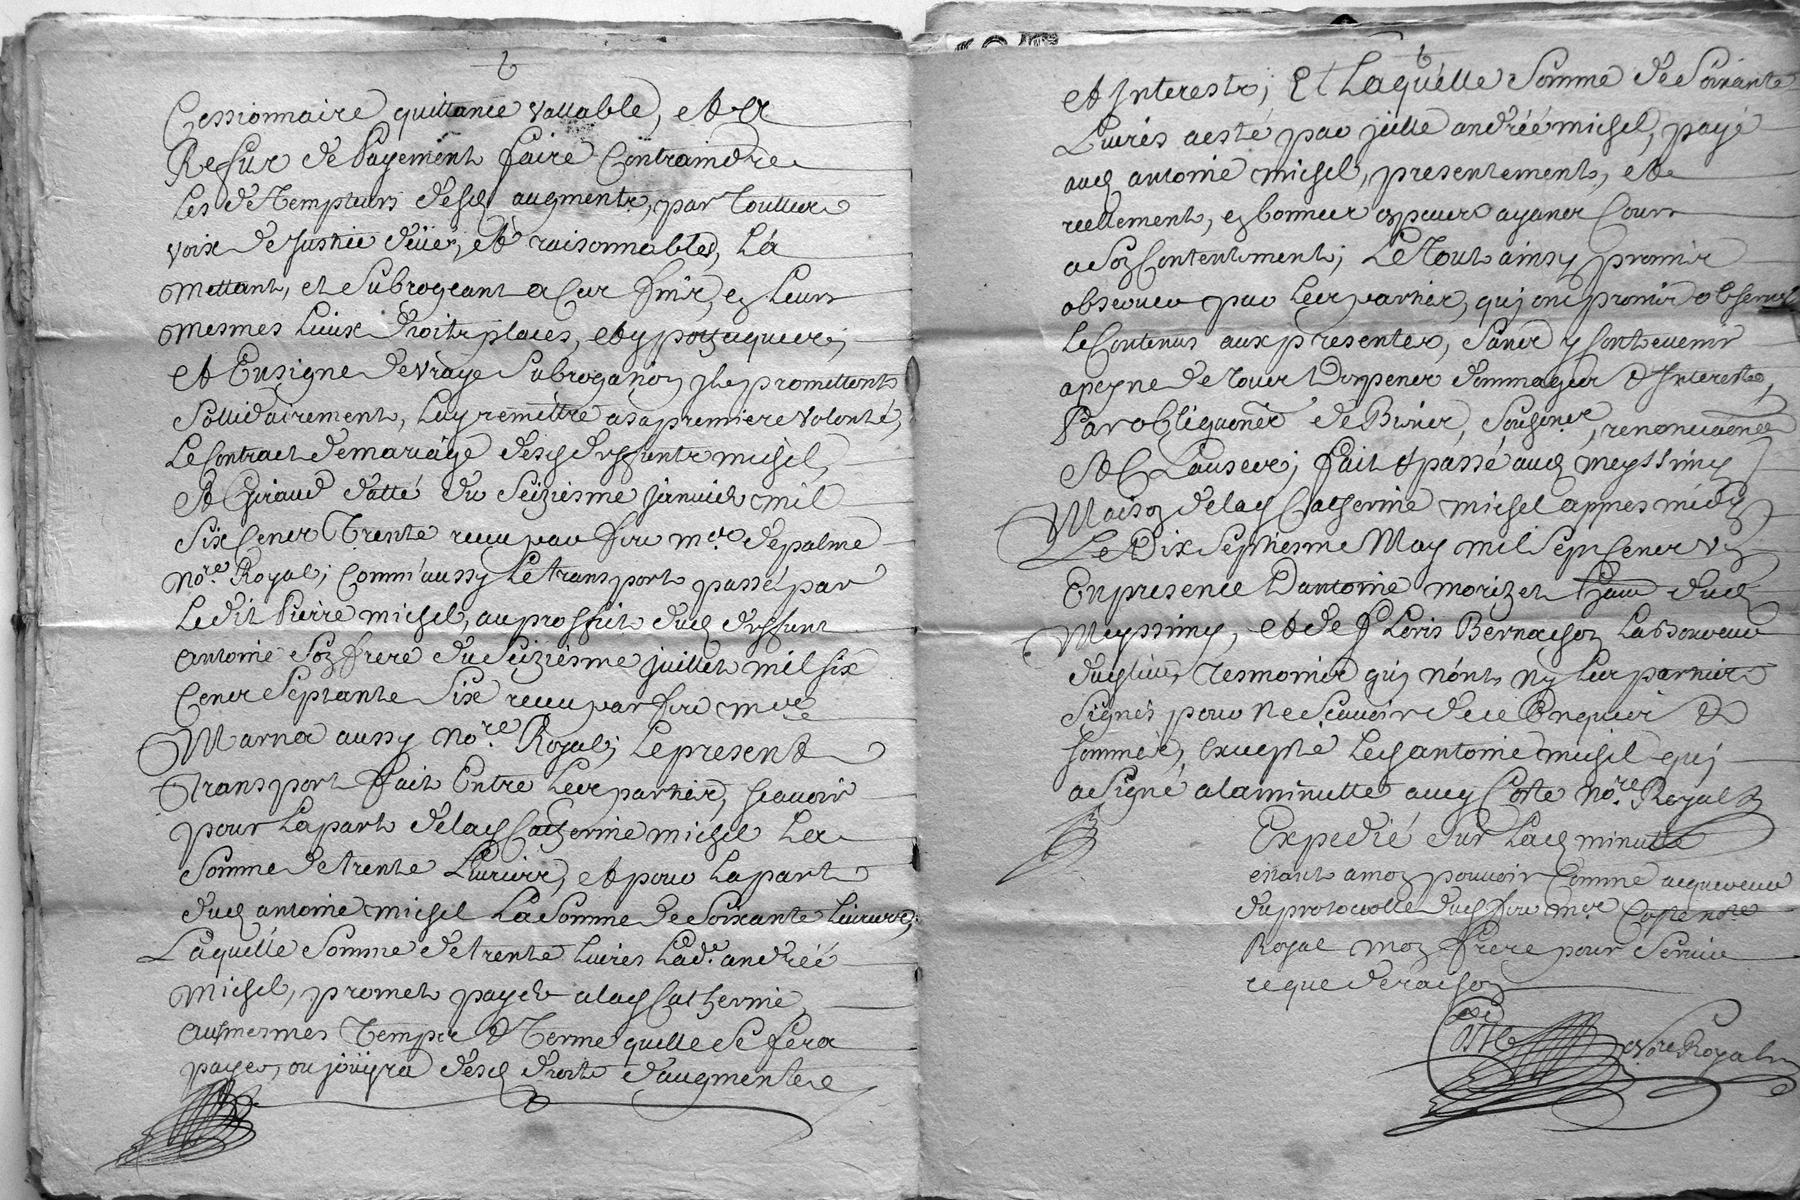 Cessionnaire quittance vallable, et a
Refus de Payement faire Contraindre
les detempteurs desd augments, par touttes
voix de Justice deües, et raisonnables, La
mettant, et Subrogeant a Ces fins, en Leurs
mesmes Lieux droits places, et ypotheques;
Et En signe de vraye Subrogation, Ils promettent
Sollidairement, Luy remettre a sa premiere volonté,
Le Contract de mariage desd deffunts michel,
Et Giraud datté du Seiziesme janvier mil
Six Cents Trente receu par feu me depalme
Nore Royal; Comm'aussy Le transport passé par
Ledit Pierre michel, au proffit dud deffunt
Antoine Son frere du Seiziesme juillet mil six
Cents Septante Six receu par feu me
Marnas aussy Nore Royal; Le present
Transport fait Entre Les parties, scavoir
pour La part de lad Catherine michel La
Somme de trente Livres, et pour La part
dud antoine michel La Somme de Soixante Livres;
Laquelle Somme de trente Livres Lade andréé
Michel, promet payer a lad Catherine,
aux mesmes Temps & Terme quelle Se fera
payer, ou joüyra desd droits d'augments
et Interests; Et Laquelle Somme de Soixante
Livres a esté par jelle andréé michel, payé
aud antoine michel, presentement, et
reellement, en bonnes especes ayants Cours
a Son Contentement; Le Tout ainsy promis
observer par Les parties, qui ont promis observer
Le Contenus aux presentes, Sans y Contrevenir
a peyne de tous Despens dommages & Interests,
Par obligations de Biens, Soumons, renonciations
Et Clauses; fait & passé aud Meyssimy
Maison de lad Catherine michel apres midy
Le Dix Septiesme May mil Sept Cents
En presence D'antoine morizet dud
Meyssimy, et de Sr Loris Bernachon Laboureur
dud lieu, Tesmoins qui n'ont Ny Les parties
Signés pour Ne Scavoir de ce Enquis &
sommés, excepté Led antoine michel qui
a Signé a la minutte avec Coste Nore Royal
Expedié Sur Lad minutte
estant a mon pouvoir Comme acquereur
du protocolle dud feu me Coste nore
Royal mon frere pour Servir
ce que de raison
Coste Nore Royal